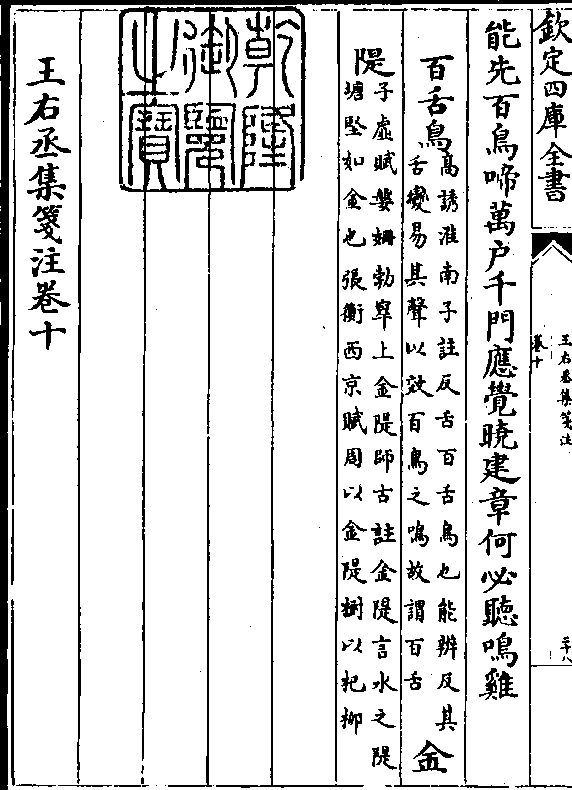 欽定四庫全書
王右丞集箋注
卷十
二十八
能先百鳥啼萬户千門應覺曉建章何必聽鳴雞
百舌鳥
高誘淮南子註反舌百舌鳥也能辨反其
舌變易其聲以效百鳥之鳴故謂百舌
金
隄
子虛賦媻姍勃窣上金隄師古註金隄言水之隄
塘堅如金也張衡西京賦周以金隄樹以杞柳
乾隆
御覽
之寶
王右丞集箋注卷十